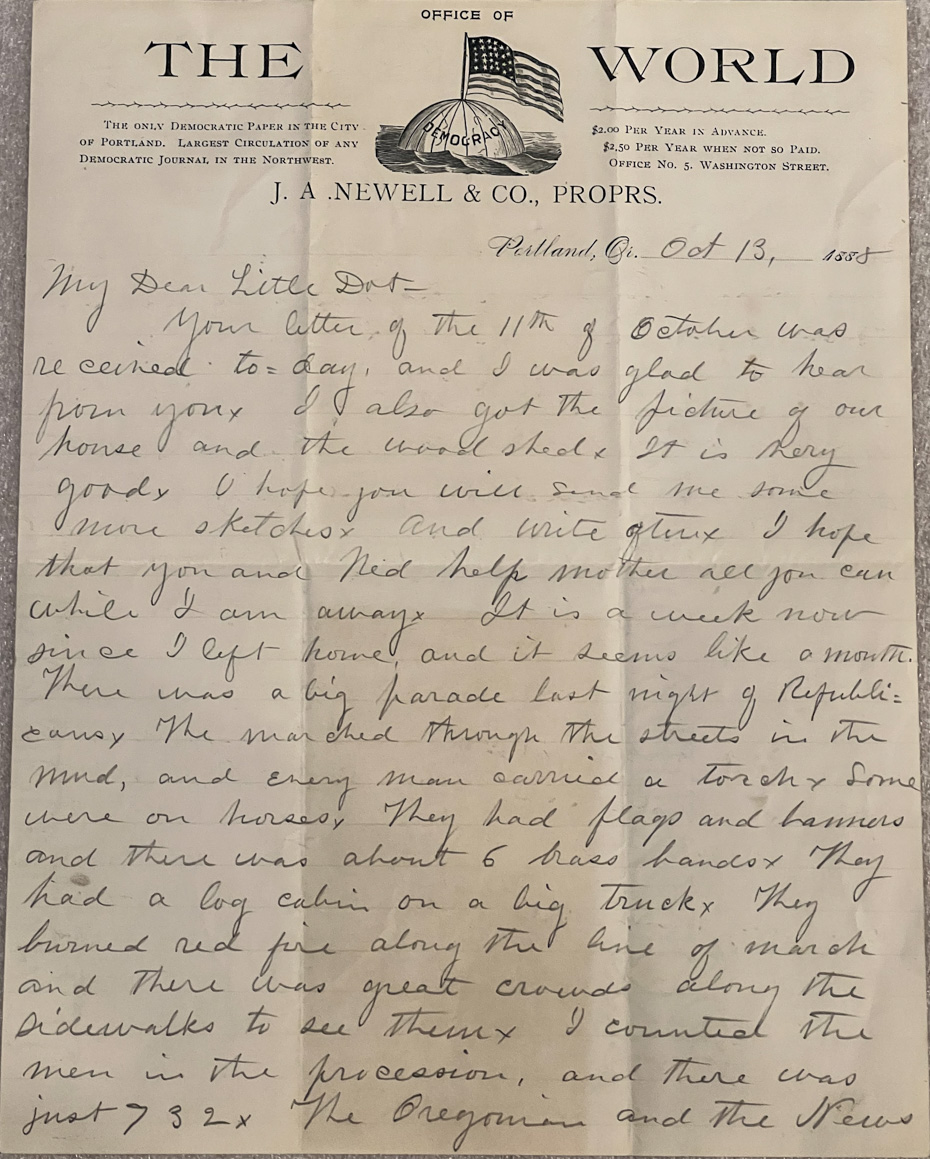 OFFICE OF
THE WORLD
DEMOCRACY
THE ONLY DEMOCRATIC PAPER IN THE CITY
OF PORTLAND. LARGEST CIRCULATION OF ANY
DEMOCRATIC JOURNAL IN THE NORTHWEST.
$2.00 PER YEAR IN ADVANCE.
$2,50 PER YEAR WHEN NOT SO PAID.
OFFICE NO. 5. WASHINGTON STREET.
J. A .NEWELL & CO., PROPRS.
Portland, Or. Oct 13, 1888
My Dear Little Dot=
Your letter of the 11th of October was
received to=day, and I was glad to hear
from youx I also got the picture of our
house and the wood shedx It is very
goodx I hope you will send me some
more sketchesx And write oftenx I hope
that you and Ned help mother all you can
while I am awayx It is a week now
since I left home, and it seems like a month.
There was a big parade last night of Republi=
cansx The marched through the streets in the
mud, and every man carried a torchx Some
were on horsesx They had flags and banners
and there was about 6 brass bandsx They
had a log cabin on a big truckx They
burned red fire along the line of march
and there was great crowds along the
sidewalks to see themx I counted the
men in the procession, and there was
just 732x The Oregonian and the News